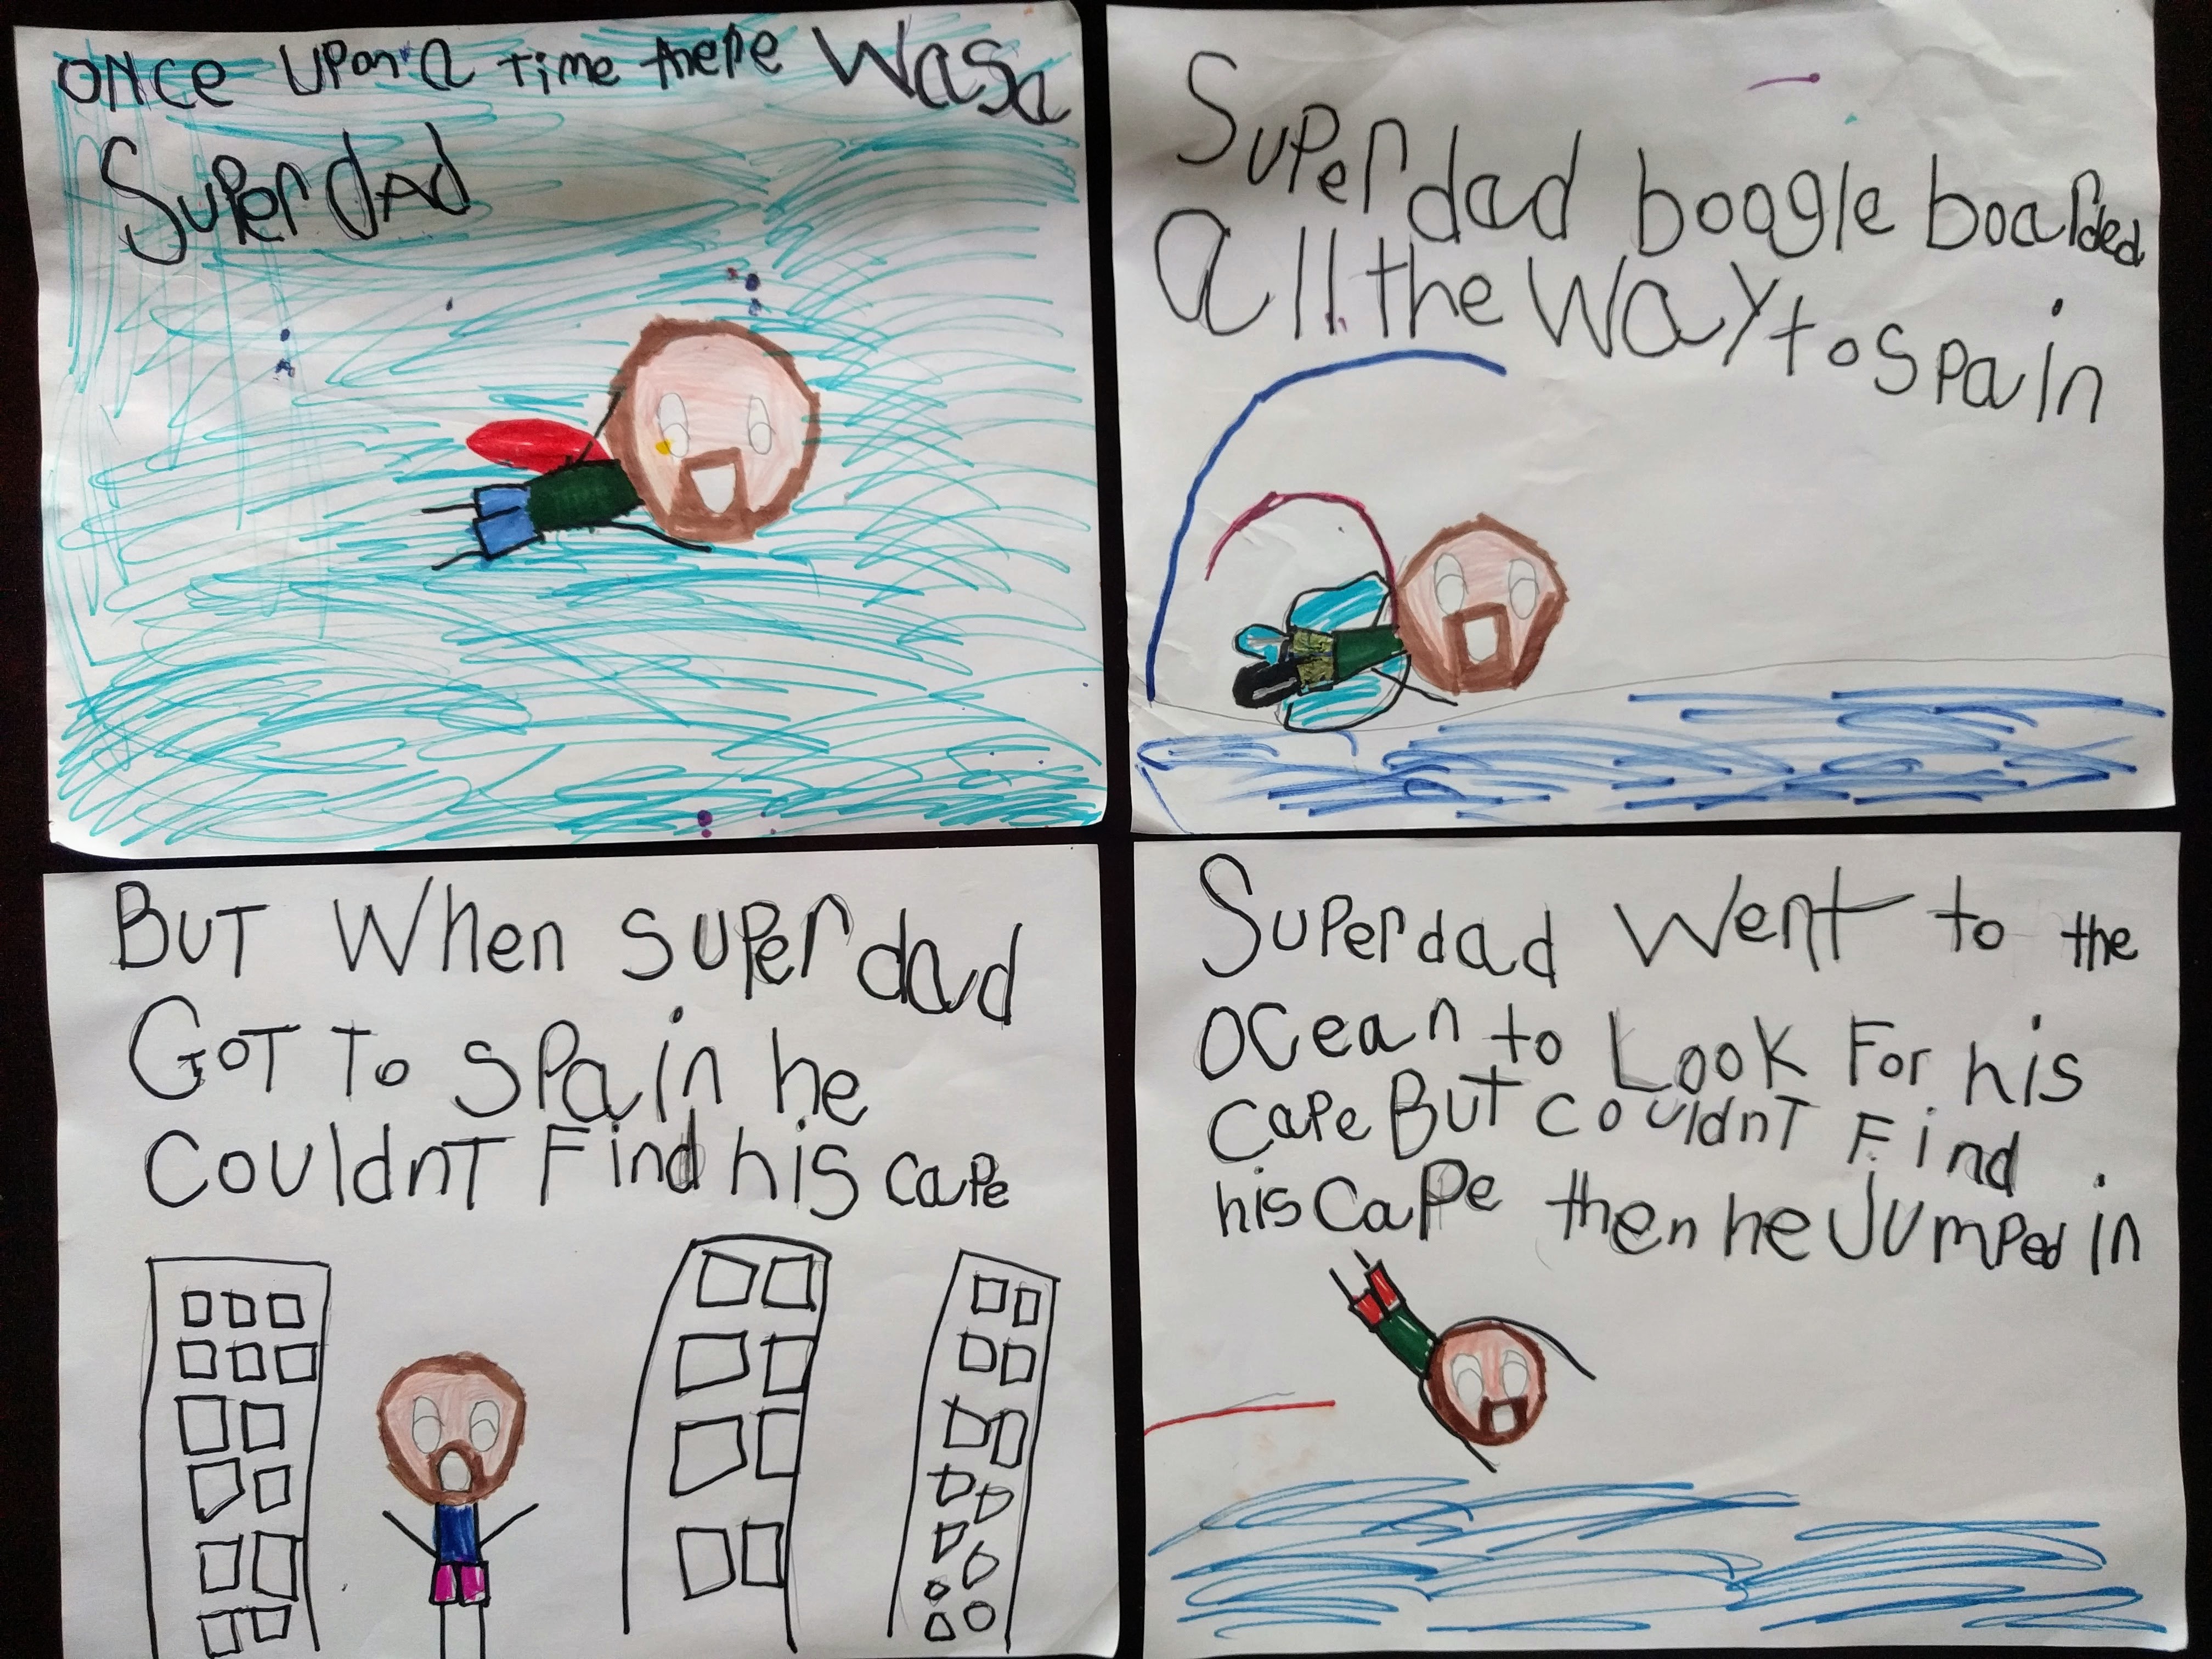 ONce UPon a Time there WaSa
SuPer dAd
SuPer dad boogle boarded
all the Way to SPain
BuT When SuPer dad
GoT To SPain he
CouldnT Find his caPe
SuPer dad Went to the
OCean to Look For his
CaPe BuT CouldnT Find
his CaPe then he JumPed in